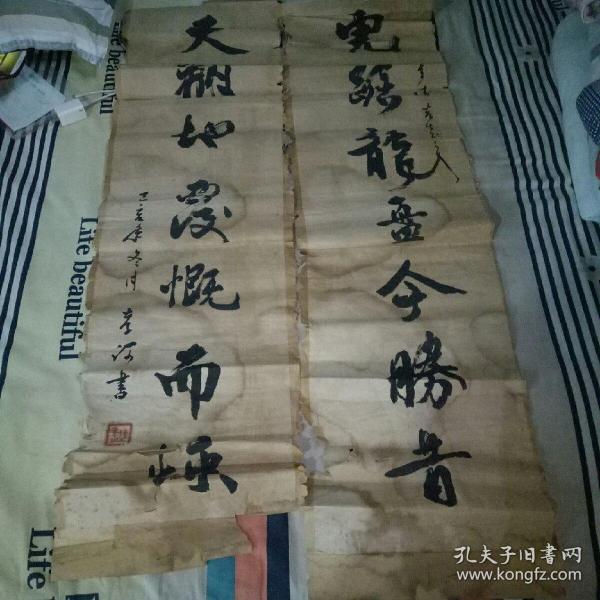 虎踞龍盤今勝昔
天翻地覆慨而慷
丁亥年冬月
書
Life beautiful
Life beautiful
Life
孔夫子旧书网
www.kongfz.com